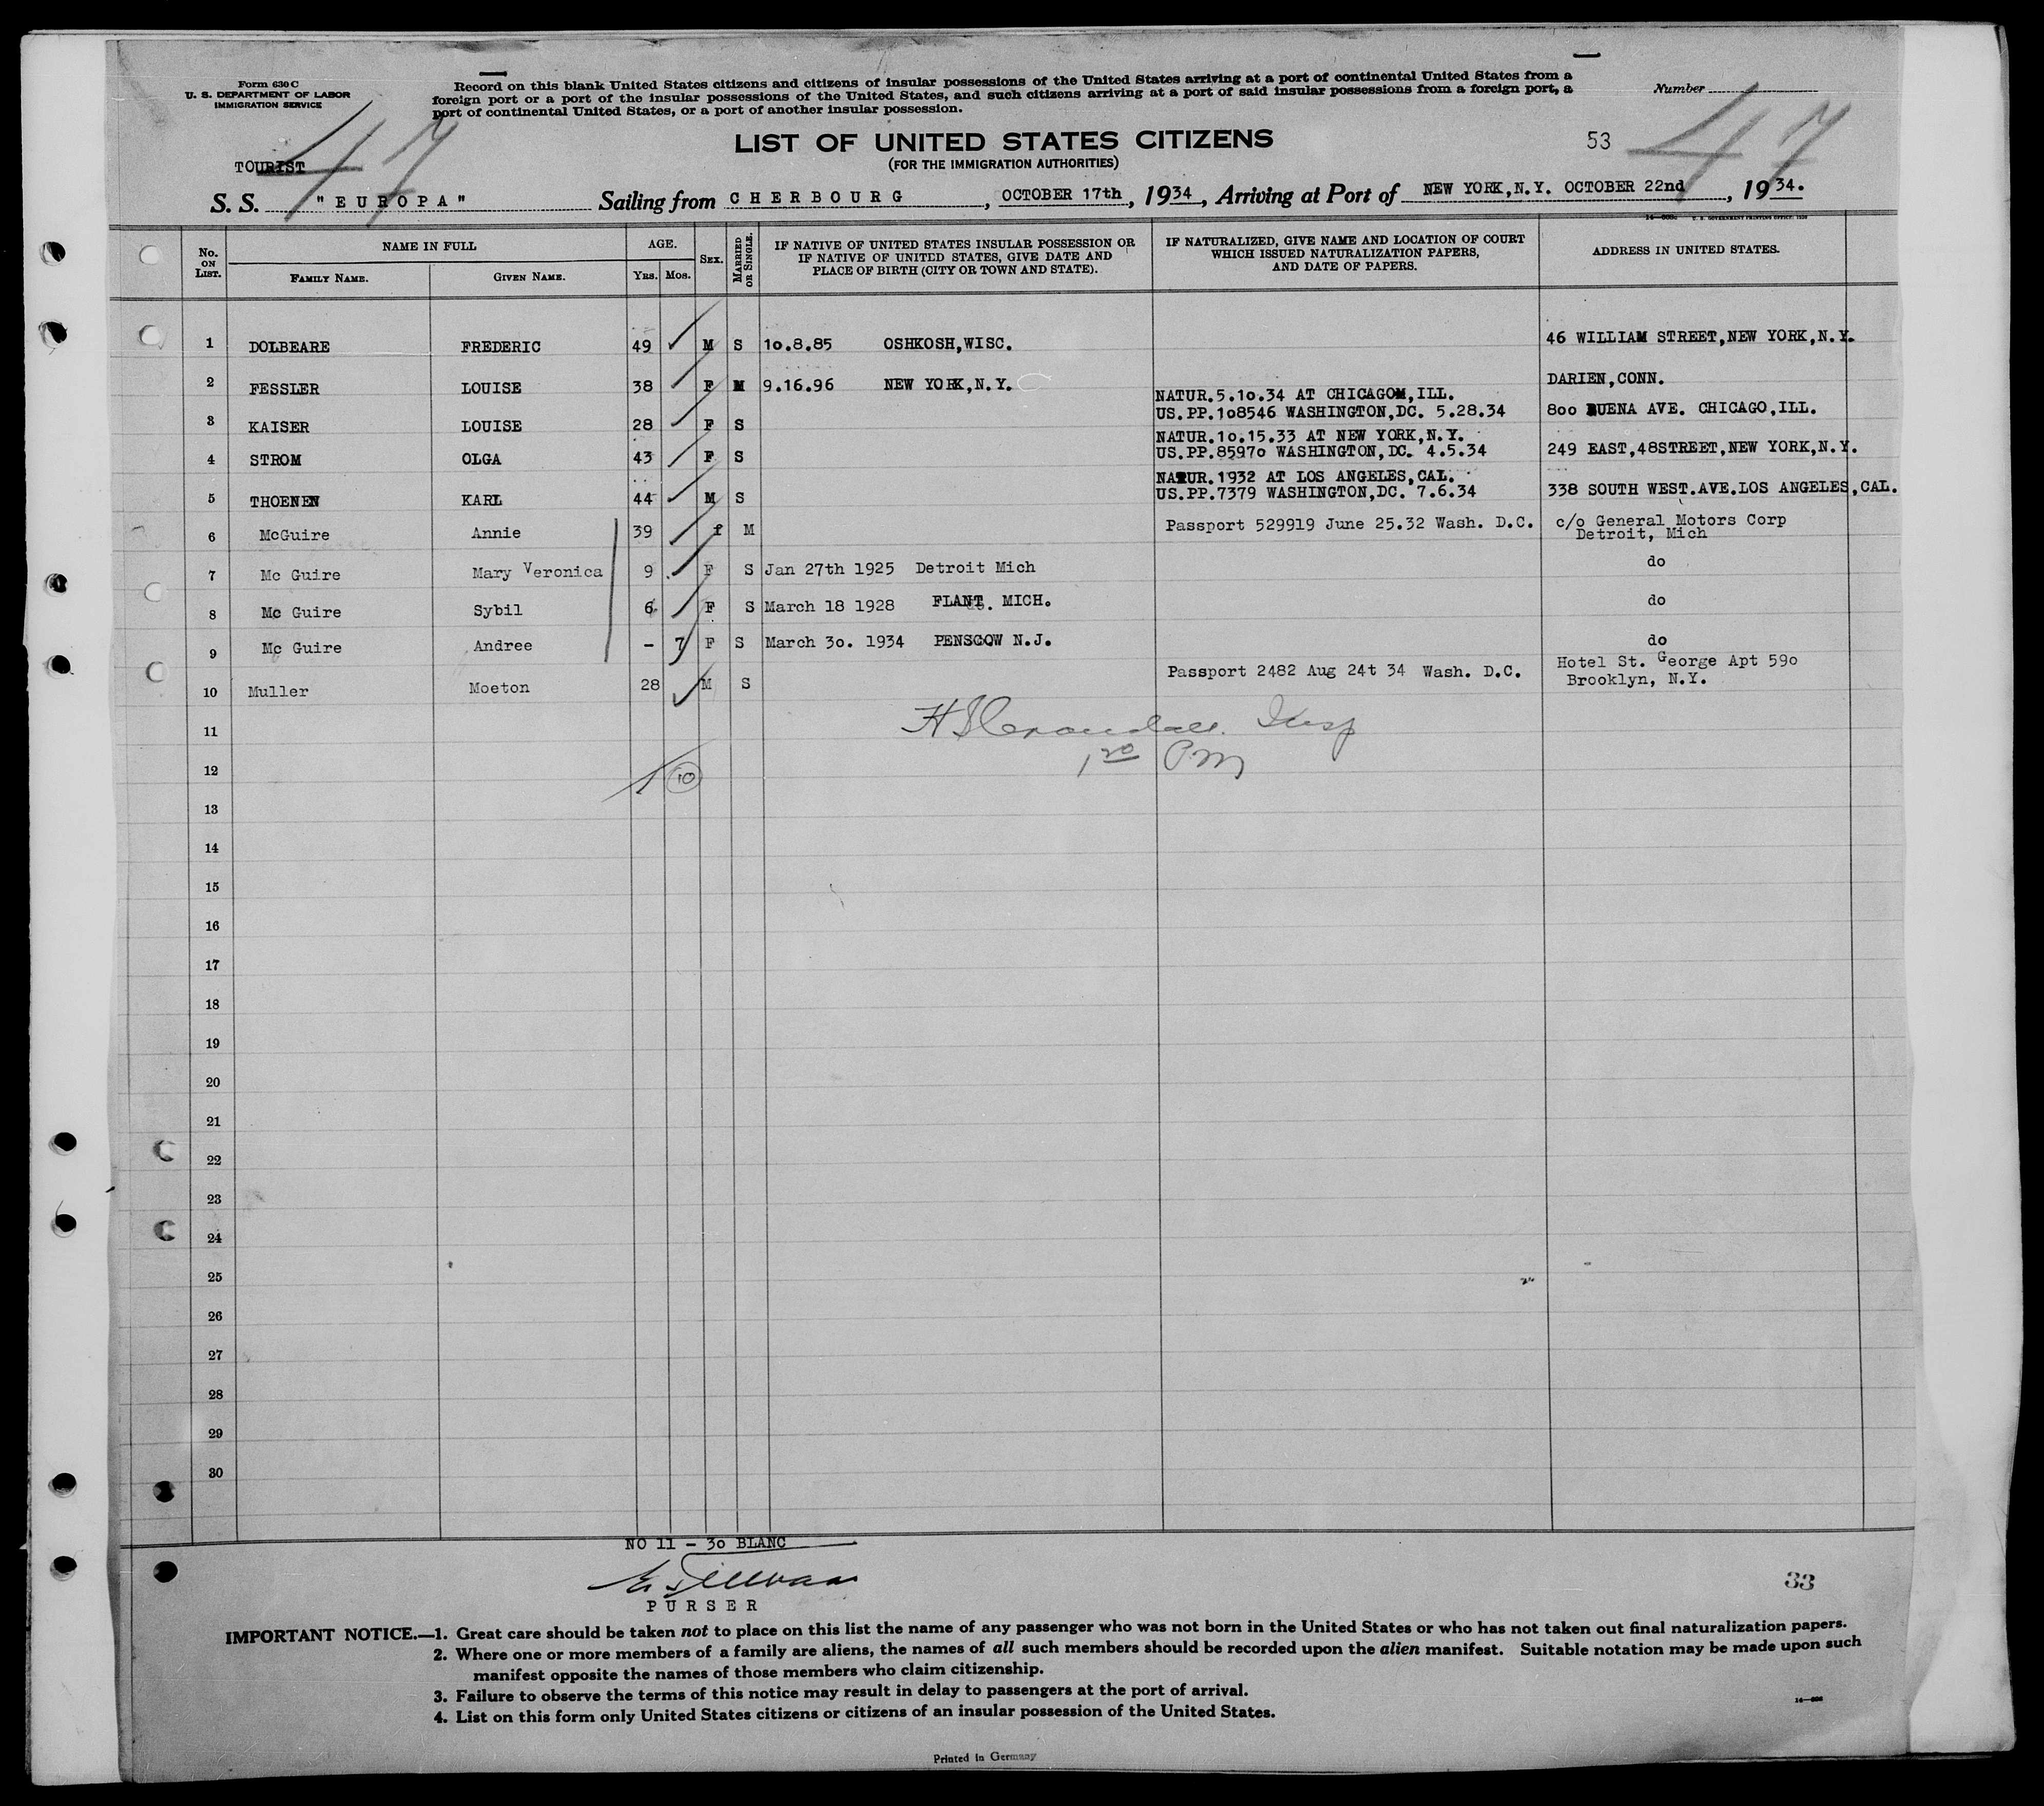 Form 630 C
U. S. DEPARTMENT OF LABOR
IMMIGRATION SERVICE
Record on this blank United States citizens and citizens of insular possessions of the United States arriving at a port of continental United States from a
foreign port or a port of the insular possessions of the United States, and such citizens arriving at a port of said insular possessions from a foreign port, a
port of continental United States, or a port of another insular possession.
Number
47
LIST OF UNITED STATES CITIZENS
(FOR THE IMMIGRATION AUTHORITIES)
53
47
TOURIST
S. S. "EUROPA" Sailing from CHERBOURG, OCTOBER 17th, 1934, Arriving at Port of NEW YORK,N.Y. OCTOBER 22nd, 1934.
No. ON LIST. NAME IN FULL AGE. SEX. MARRIED OR SINGLE. IF NATIVE OF UNITED STATES INSULAR POSSESSION OR IF NATIVE OF UNITED STATES, GIVE DATE AND PLACE OF BIRTH (CITY OR TOWN AND STATE). IF NATURALIZED, GIVE NAME AND LOCATION OF COURT WHICH ISSUED NATURALIZATION PAPERS, AND DATE OF PAPERS. ADDRESS IN UNITED STATES.
FAMILY NAME. GIVEN NAME. YRS. MOS.
1 DOLBEARE FREDERIC 49 M S 10.8.85 OSHKOSH,WISC. 46 WILLIAM STREET,NEW YORK,N.Y.
2 FESSLER LOUISE 38 F M 9.16.96 NEW YORK,N.Y. DARIEN,CONN.
NATUR.5.10.34 AT CHICAGOM,ILL.
3 KAISER LOUISE 28 F S US.PP.108546 WASHINGTON,DC. 5.28.34 800 BUENA AVE. CHICAGO,ILL.
NATUR.10.15.33 AT NEW YORK,N.Y.
4 STROM OLGA 43 F S US.PP.85970 WASHINGTON,DC. 4.5.34 249 EAST,48STREET,NEW YORK,N.Y.
NATUR.1932 AT LOS ANGELES,CAL.
5 THOENEN KARL 44 M S US.PP.7379 WASHINGTON,DC. 7.6.34 338 SOUTH WEST.AVE.LOS ANGELES,CAL.
6 McGuire Annie 39 f M Passport 529919 June 25.32 Wash. D.C. c/o General Motors Corp
Detroit, Mich
7 Mc Guire Mary Veronica 9 F S Jan 27th 1925 Detroit Mich do
8 Mc Guire Sybil 6 F S March 18 1928 FLANT. MICH. do
9 Mc Guire Andree - 7 F S March 30. 1934 PENSGOW N.J. do
Hotel St. George Apt 590
10 Muller Moeton 28 M S Passport 2482 Aug 24t 34 Wash. D.C. Brooklyn, N.Y.
11
Insp
12 10 1 30 PM
13
14
15
16
17
18
19
20
21
22
23
24
25
26
27
28
29
30
NO 11 - 30 BLANC
PURSER
33
IMPORTANT NOTICE.—1. Great care should be taken not to place on this list the name of any passenger who was not born in the United States or who has not taken out final naturalization papers.
2. Where one or more members of a family are aliens, the names of all such members should be recorded upon the alien manifest. Suitable notation may be made upon such
manifest opposite the names of those members who claim citizenship.
3. Failure to observe the terms of this notice may result in delay to passengers at the port of arrival.
4. List on this form only United States citizens or citizens of an insular possession of the United States.
Printed in Germany